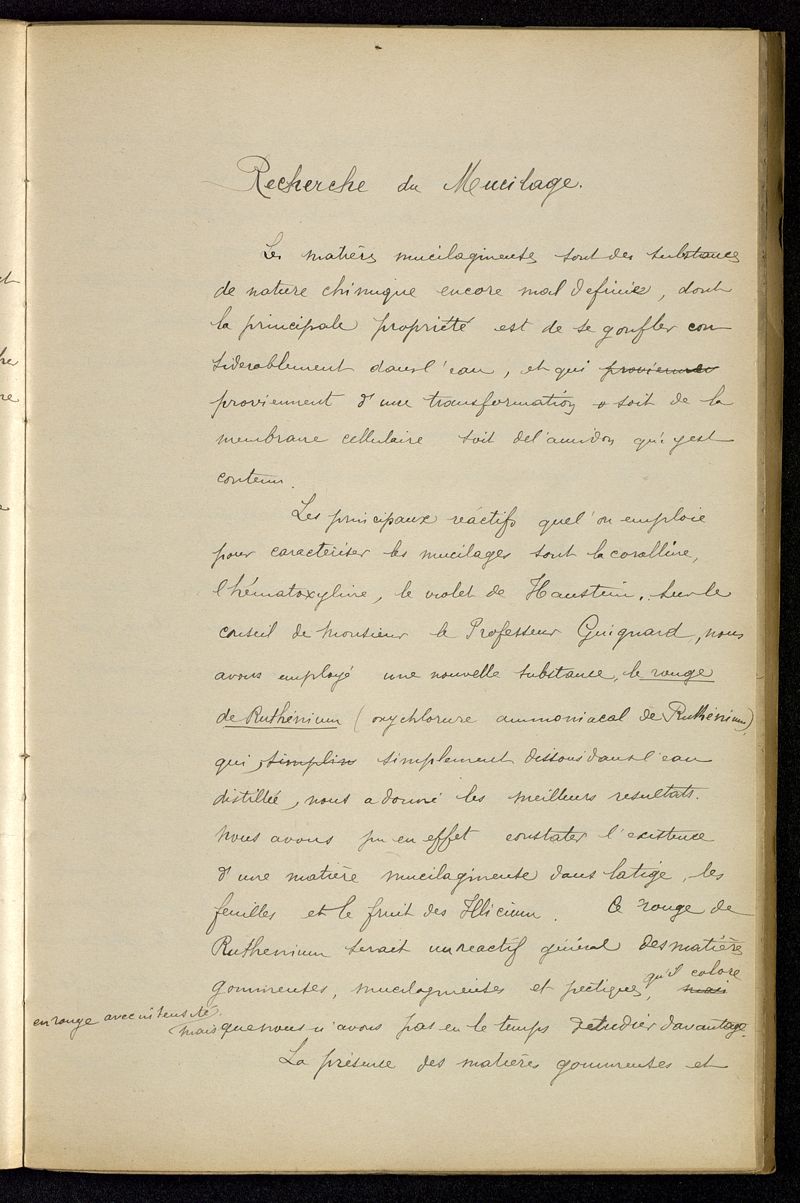 Recherche du Mucilage.
Les matières mucilagineuses sont des substances
de nature chimique encore mal définie, dont
la principale propriété est de se gonfler con
sidérablement dans l'eau, et qui proviennent
proviennent d'une transformation soit de la
membrane cellulaire soit de l'amidon qui y est
contenu.
Les principaux réactifs que l'on emploie
pour caractériser les mucilages sont la coralline,
l'hématoxyline, le violet de Hanstein. Sur le
conseil de Monsieur le Professeur Guignard, nous
avons employé une nouvelle substance, le rouge
de Ruthénium (oxychlorure ammoniacal de Ruthénium),
qui, simplem simplement dissous dans l'eau
distillée, nous a donné les meilleurs resultats.
Nous avons pu en effet constater l'existence
d'une matière mucilagineuse dans la tige, les
feuilles et le fruit des Illicium. Ce rouge de
Ruthenium serait un reactif général des matières
gommeuses, mucilagineuses et pectiques, qu'il colore mais
en rouge avec intensité.
mais que nous n'avons pas eu le temps d'etudier davantage.
La présence des matières gommeuses et